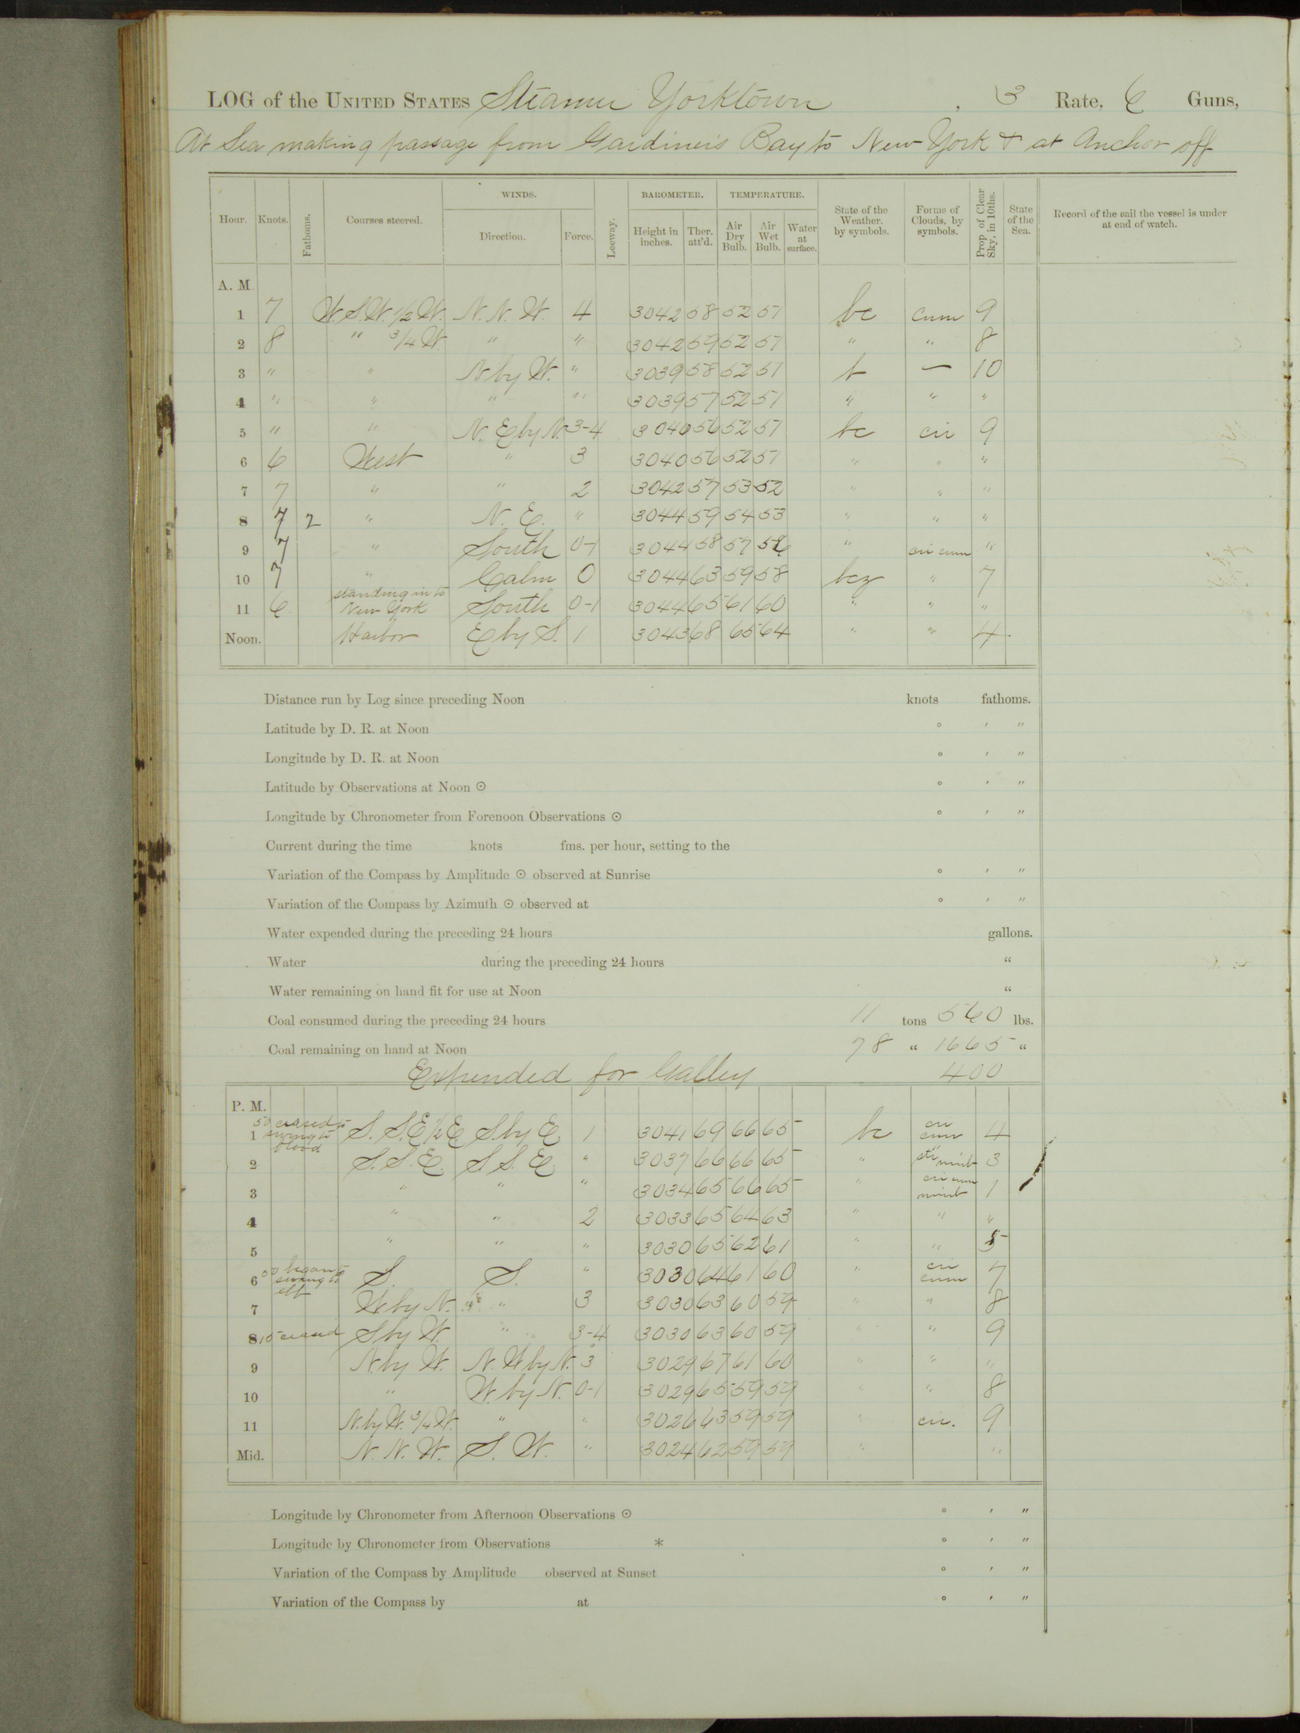 LOG of the UNITED STATES Steamer Yorktown, 3 Rate, 6 Guns,
At Sea making passage from Gardiner's Bay to New York & at Anchor off
WINDS. BAROMETER. TEMPERATURE.
Hour. Knots. Fathoms. Courses steered. Direction. Force. Leeway. Height in inches. Ther. att'd. Air Dry Bulb. Air Wet Bulb. Water at surface. State of the Weather, by symbols. Forms of Clouds, by symbols. Prop. of Clear Sky, in 10ths. State of the Sea. Record of the sail the vessel is under at end of watch.
A. M.
1 7 W.S.W. 1/2 W. N. N. W. 4 3042 58 52 51 bc cum 9
2 8 " 3/4 W " " 3042 59 52 51 " " 8
3 " " N by W. " 3039 58 52 51 b — 10
4 " " " " 3039 57 52 51 " " "
5 " " N. E by N. 3-4 3040 56 52 51 bc cir 9
6 6 West " 3 3040 56 52 51 " " "
7 7 " " 2 3042 57 53 52 " " "
8 7 2 " N. E. " 3044 59 54 53 " " "
9 7 " South 0-1 3044 58 57 56 " cir cum "
10 7 " Calm 0 3044 63 59 58 bcz " 7
11 6 standing in to New York South 0-1 3044 65 61 60 " " "
Noon. Harbor E by S. 1 3043 68 65 64 " " 4
Distance run by Log since preceding Noon knots fathoms.
Latitude by D. R. at Noon ° ' "
Longitude by D. R. at Noon ° ' "
Latitude by Observations at Noon ☉ ° ' "
Longitude by Chronometer from Forenoon Observations ☉ ° ' "
Current during the time knots fms. per hour, setting to the
Variation of the Compass by Amplitude ☉ observed at Sunrise ° ' "
Variation of the Compass by Azimuth ☉ observed at ° ' "
Water expended during the preceding 24 hours gallons.
Water during the preceding 24 hours "
Water remaining on hand fit for use at Noon "
Coal consumed during the preceding 24 hours 11 tons 560 lbs.
Coal remaining on hand at Noon 78 " 1665 "
Expended for Galley 400
P. M.
1 swung to flood S. S.E 1/2 E S. by E 1 3041 69 66 65 bc cir cum 4
2 S. S. E. S S. E " 3037 66 66 65 " str nimb 3
3 " " " 3034 65 66 65 cir cum nimb 1
4 " " 2 3033 65 64 63 " " "
5 " " " 3030 65 62 61 " " 5
6 began swing to ebb S. S. " 3030 64 61 60 cir cum 7
7 W by N. " 3 3030 63 60 59 " 8
8 S by W. " 3-4 3030 63 60 59 " " 9
9 N. by W. N. W by N. 3 3029 67 61 60 " " "
10 " W. by N. 0-1 3029 65 59 59 " " 8
11 N. by W. 3/4 W. " " 3026 63 59 59 " cir. 9
Mid. N. N. W. S. W. " 3024 62 59 59 " "
Longitude by Chronometer from Afternoon Observations ☉ ° ' "
Longitude by Chronometer from Observations * ° ' "
Variation of the Compass by Amplitude observed at Sunset ° ' "
Variation of the Compass by at ° ' "